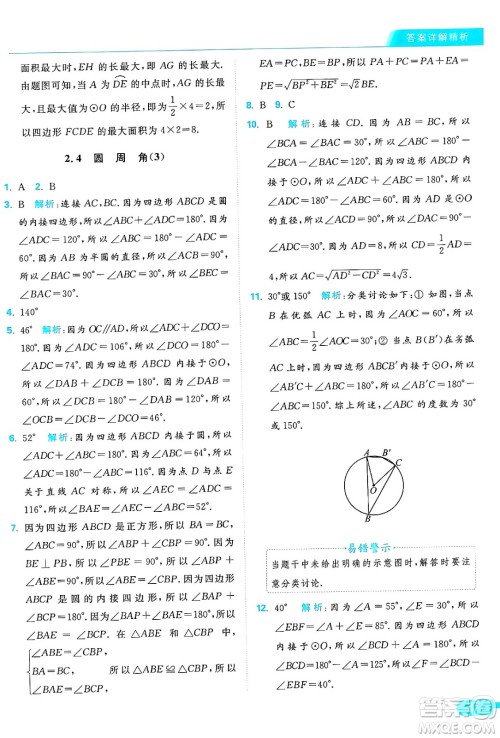 答案详解精析
面积最大时，EH 的长最大，即 AG 的长最大.
由题图可知，当 A 为 DE 的中点时，AG 的长最大，
且最大值为⊙O 的半径，即 1/2×4=2，所
以四边形 FCDE 的最大面积为 4×2=8.
2.4 圆 周 角(3)
1. A 2. B
3. B 解析：连接 AC，BC. 因为四边形 ABCD 是圆
的内接四边形，所以∠ABC+∠ADC=180°. 因为
∠ADC=120°，所以∠ABC=180°-∠ADC=
60°. 因为 AB 为半圆的直径，所以∠ACB=90°，
所以∠BAC=90°-∠ABC=30°，所以∠BEC=
∠BAC=30°.
4. 140°
5. 46° 解析：因为 OC∥AD，所以∠ADC+∠DCO=
180°. 因为∠ADC=64°+∠DCO，所以∠DCO=
58°，所以∠ADC=116°. 因为四边形 ABCD 内接
于⊙O，所以∠ABC=180°-∠ADC=64°，所以
∠AOD=2∠ABD=2(∠ABC-∠DBC)=88°，所
以∠DAB+∠ADO=180°-∠AOD=92°. 因为
OA=OD，所以∠DAB=∠ADO，所以∠DAB=46°.
6. 52° 解析：因为四边形 ABCD 内接于圆，所以
∠B+∠D=180°. 因为∠B=64°，所以∠D=
180°-∠B=180°-64°=116°. 因为点 D 与点 E
关于直线 AC 对称，所以∠AEC=∠D=116°，所以
∠BAE=∠AEC-∠B=116°-64°=52°.
7. 因为四边形 ABCD 是正方形，所以 AB=BC，
∠ABC=90°，所以∠ABE+∠CBE=90°. 因为
BE⊥PB，所以∠PBE=90°，所以∠ABE+
∠ABP=90°，所以∠ABP=∠CBE. 因为四边形
ABCP 是圆的内接四边形，所以∠BAP+∠BCP=
180°. 因为∠BAP+∠BAE=180°，所以∠BAE=
∠BCP. 在△ABE 和△CBP 中，
∠BAE=∠BCP，
BA=BC，
∠ABE=∠CBP，
所以△ABE≌△CBP，所以 BE=
BP=2，AE=CP，所以 PA+PC=PA+AE=
PE=√(BP²+BE²)=2√2.
8. B 9. C
10. B 解析：连接 CD. 因为 AB=BC，所以∠BAC=
∠BCA=1/2(180°-∠ABC)=30°，所以∠BDC=
∠BAC=30°，∠ADB=∠BCA=30°，所以
∠ADC=∠ADB+∠BDC=60°. 因为 AD 是⊙O
的直径，所以∠ACD=90°，所以∠CAD=90°-
∠ADC=30°. 因为 AD=8，所以 CD=1/2AD=
4，所以 AC=√(AD²-CD²)=4√3.
11. 30°或150° 解析：分类讨论如下：① 当点 B
在优弧 AC 上时，因为∠AOC=60°，所以
∠ABC=1/2∠AOC=30°；② 当点 B(B′)在劣弧
AC 上时，因为四边形 ABCB′内接于⊙O，所以
∠AB′C+∠ABC=180°，所以∠AB′C=180°-
∠ABC=150°. 综上所述，∠ABC 的度数为 30°或
150°.
A B′ C O B
易错警示
当题干中未给出明确的示意图时，解答时要注
意分类讨论.
12. 40° 解析：因为∠A=55°，∠E=30°，所以
∠EBF=∠A+∠E=85°. 因为四边形 ABCD 内
接于⊙O，所以∠A+∠BCD=180°，所以
∠BCD=180°-∠A=125°. 因为∠BCD=∠F+